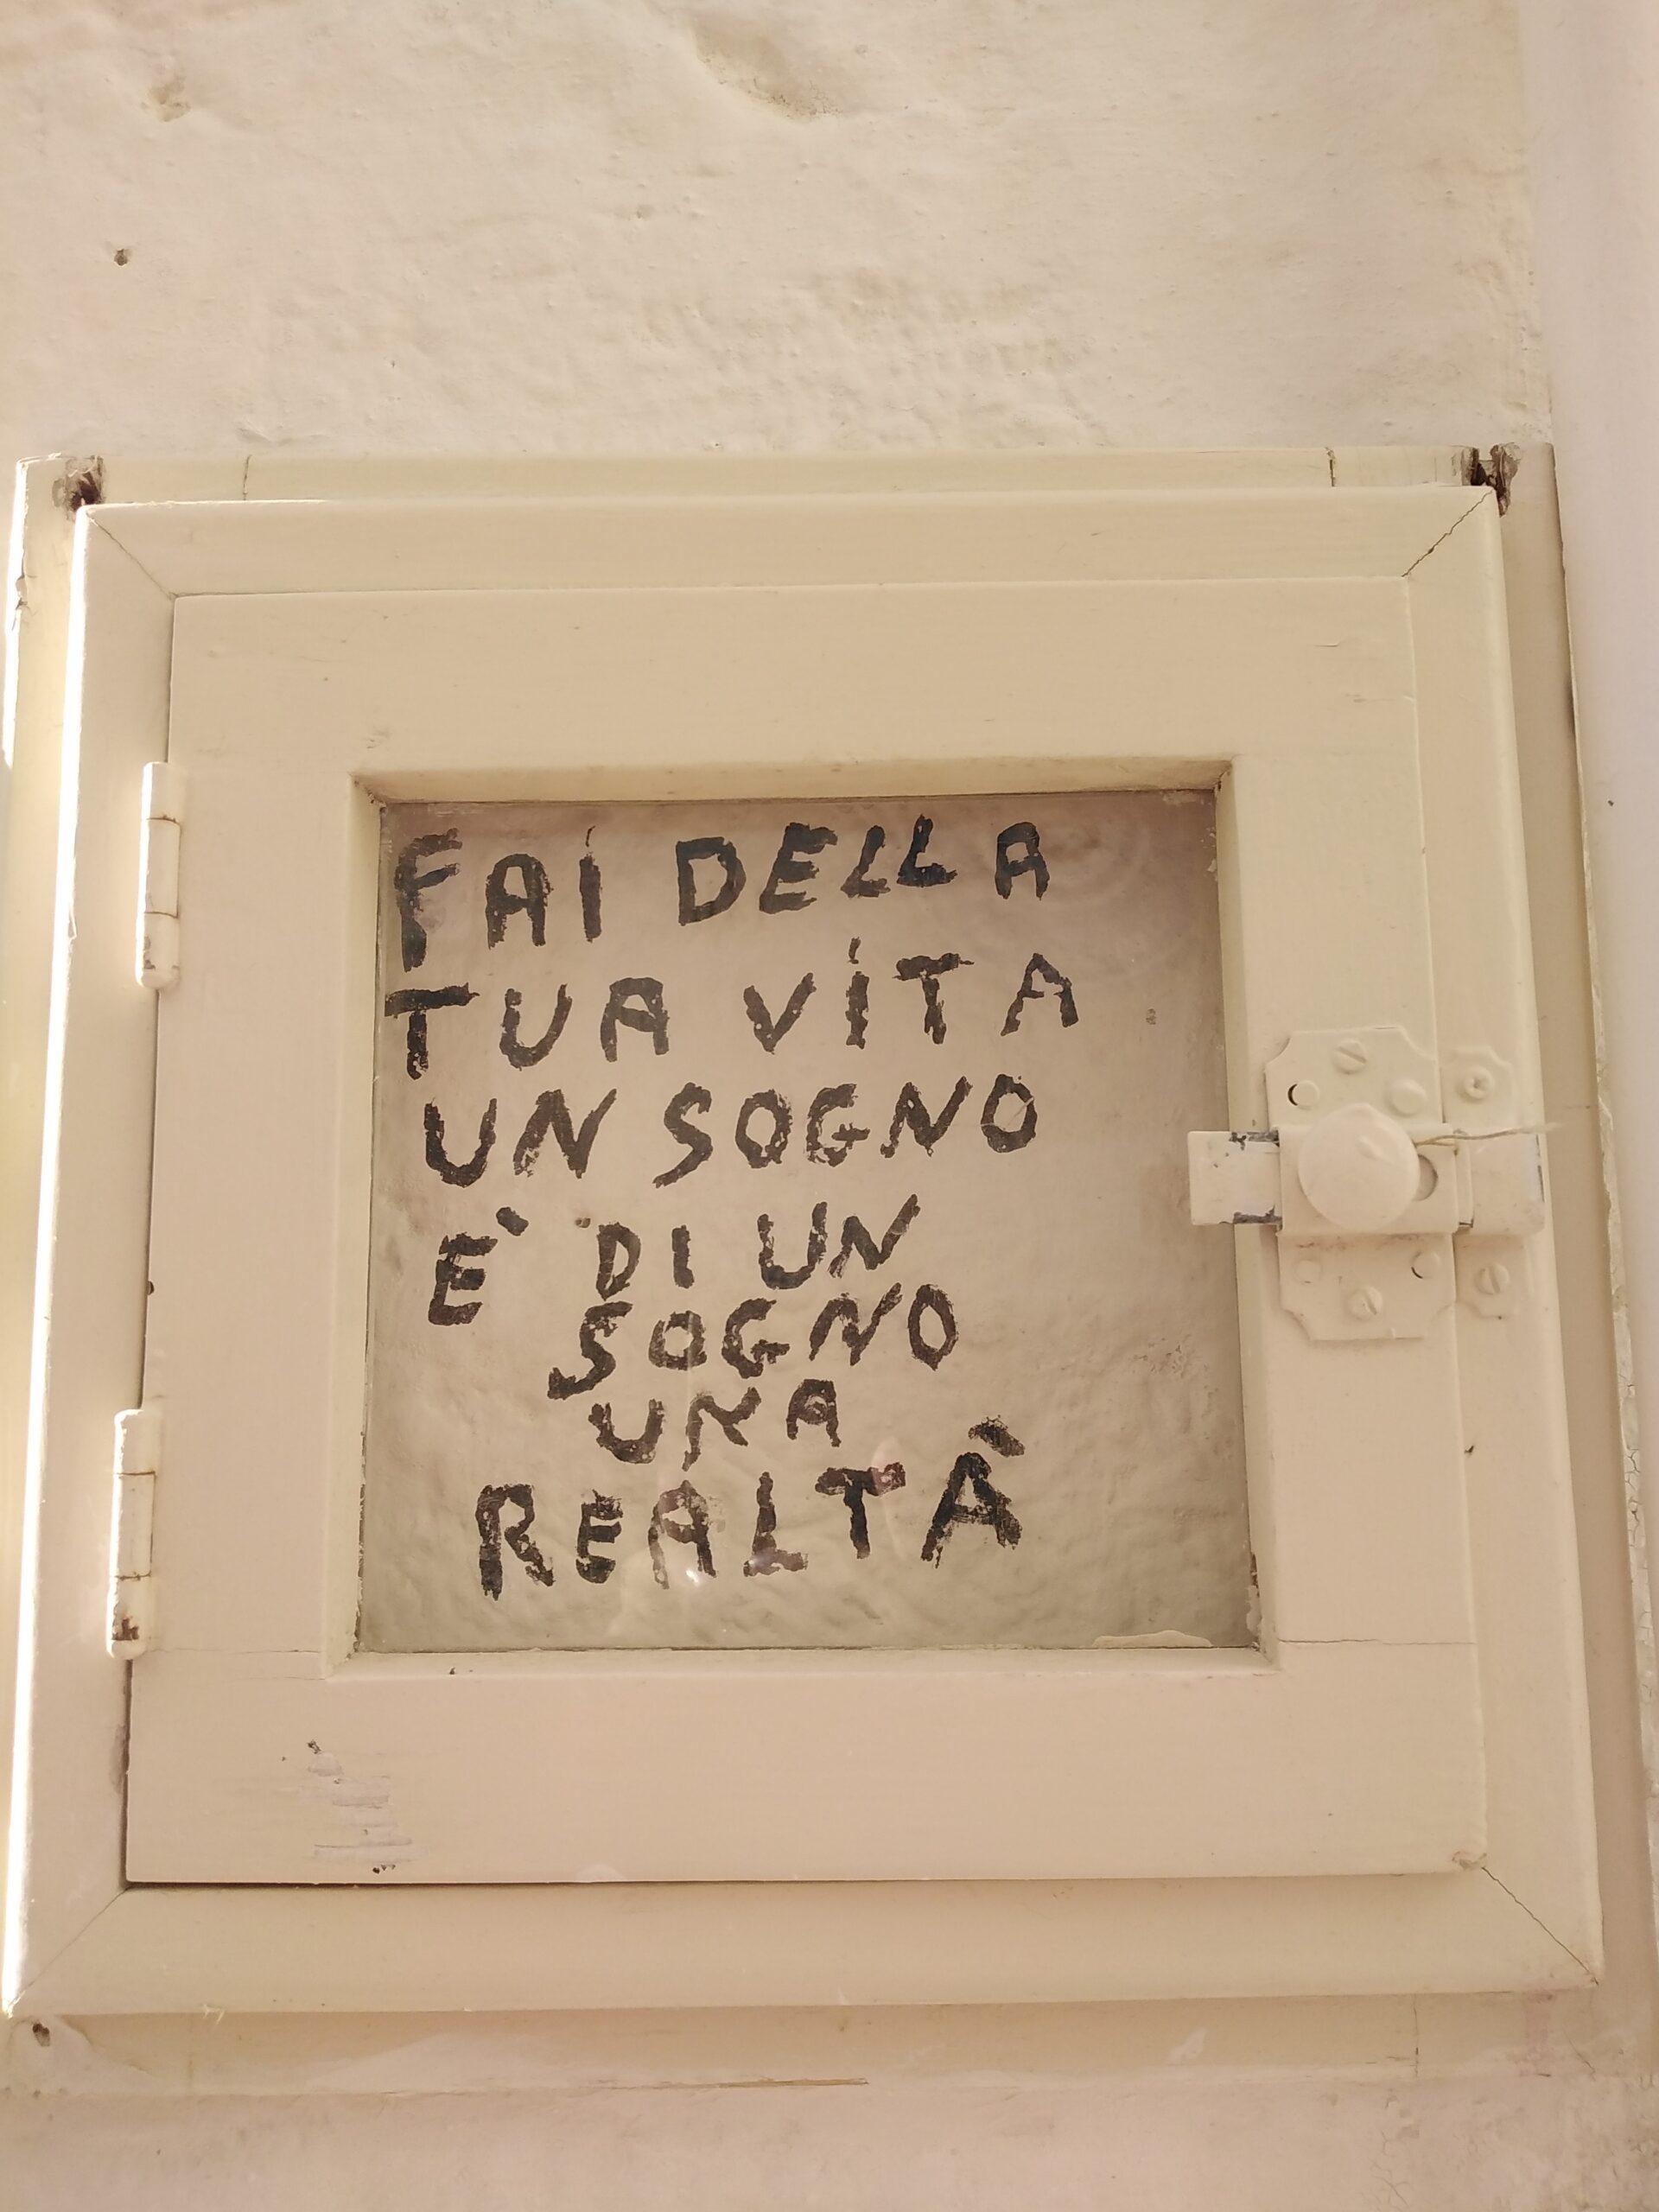 FAI DELLA
TUA VITA
UN SOGNO
E` DI UN
SOGNO
UNA
REALTÀ